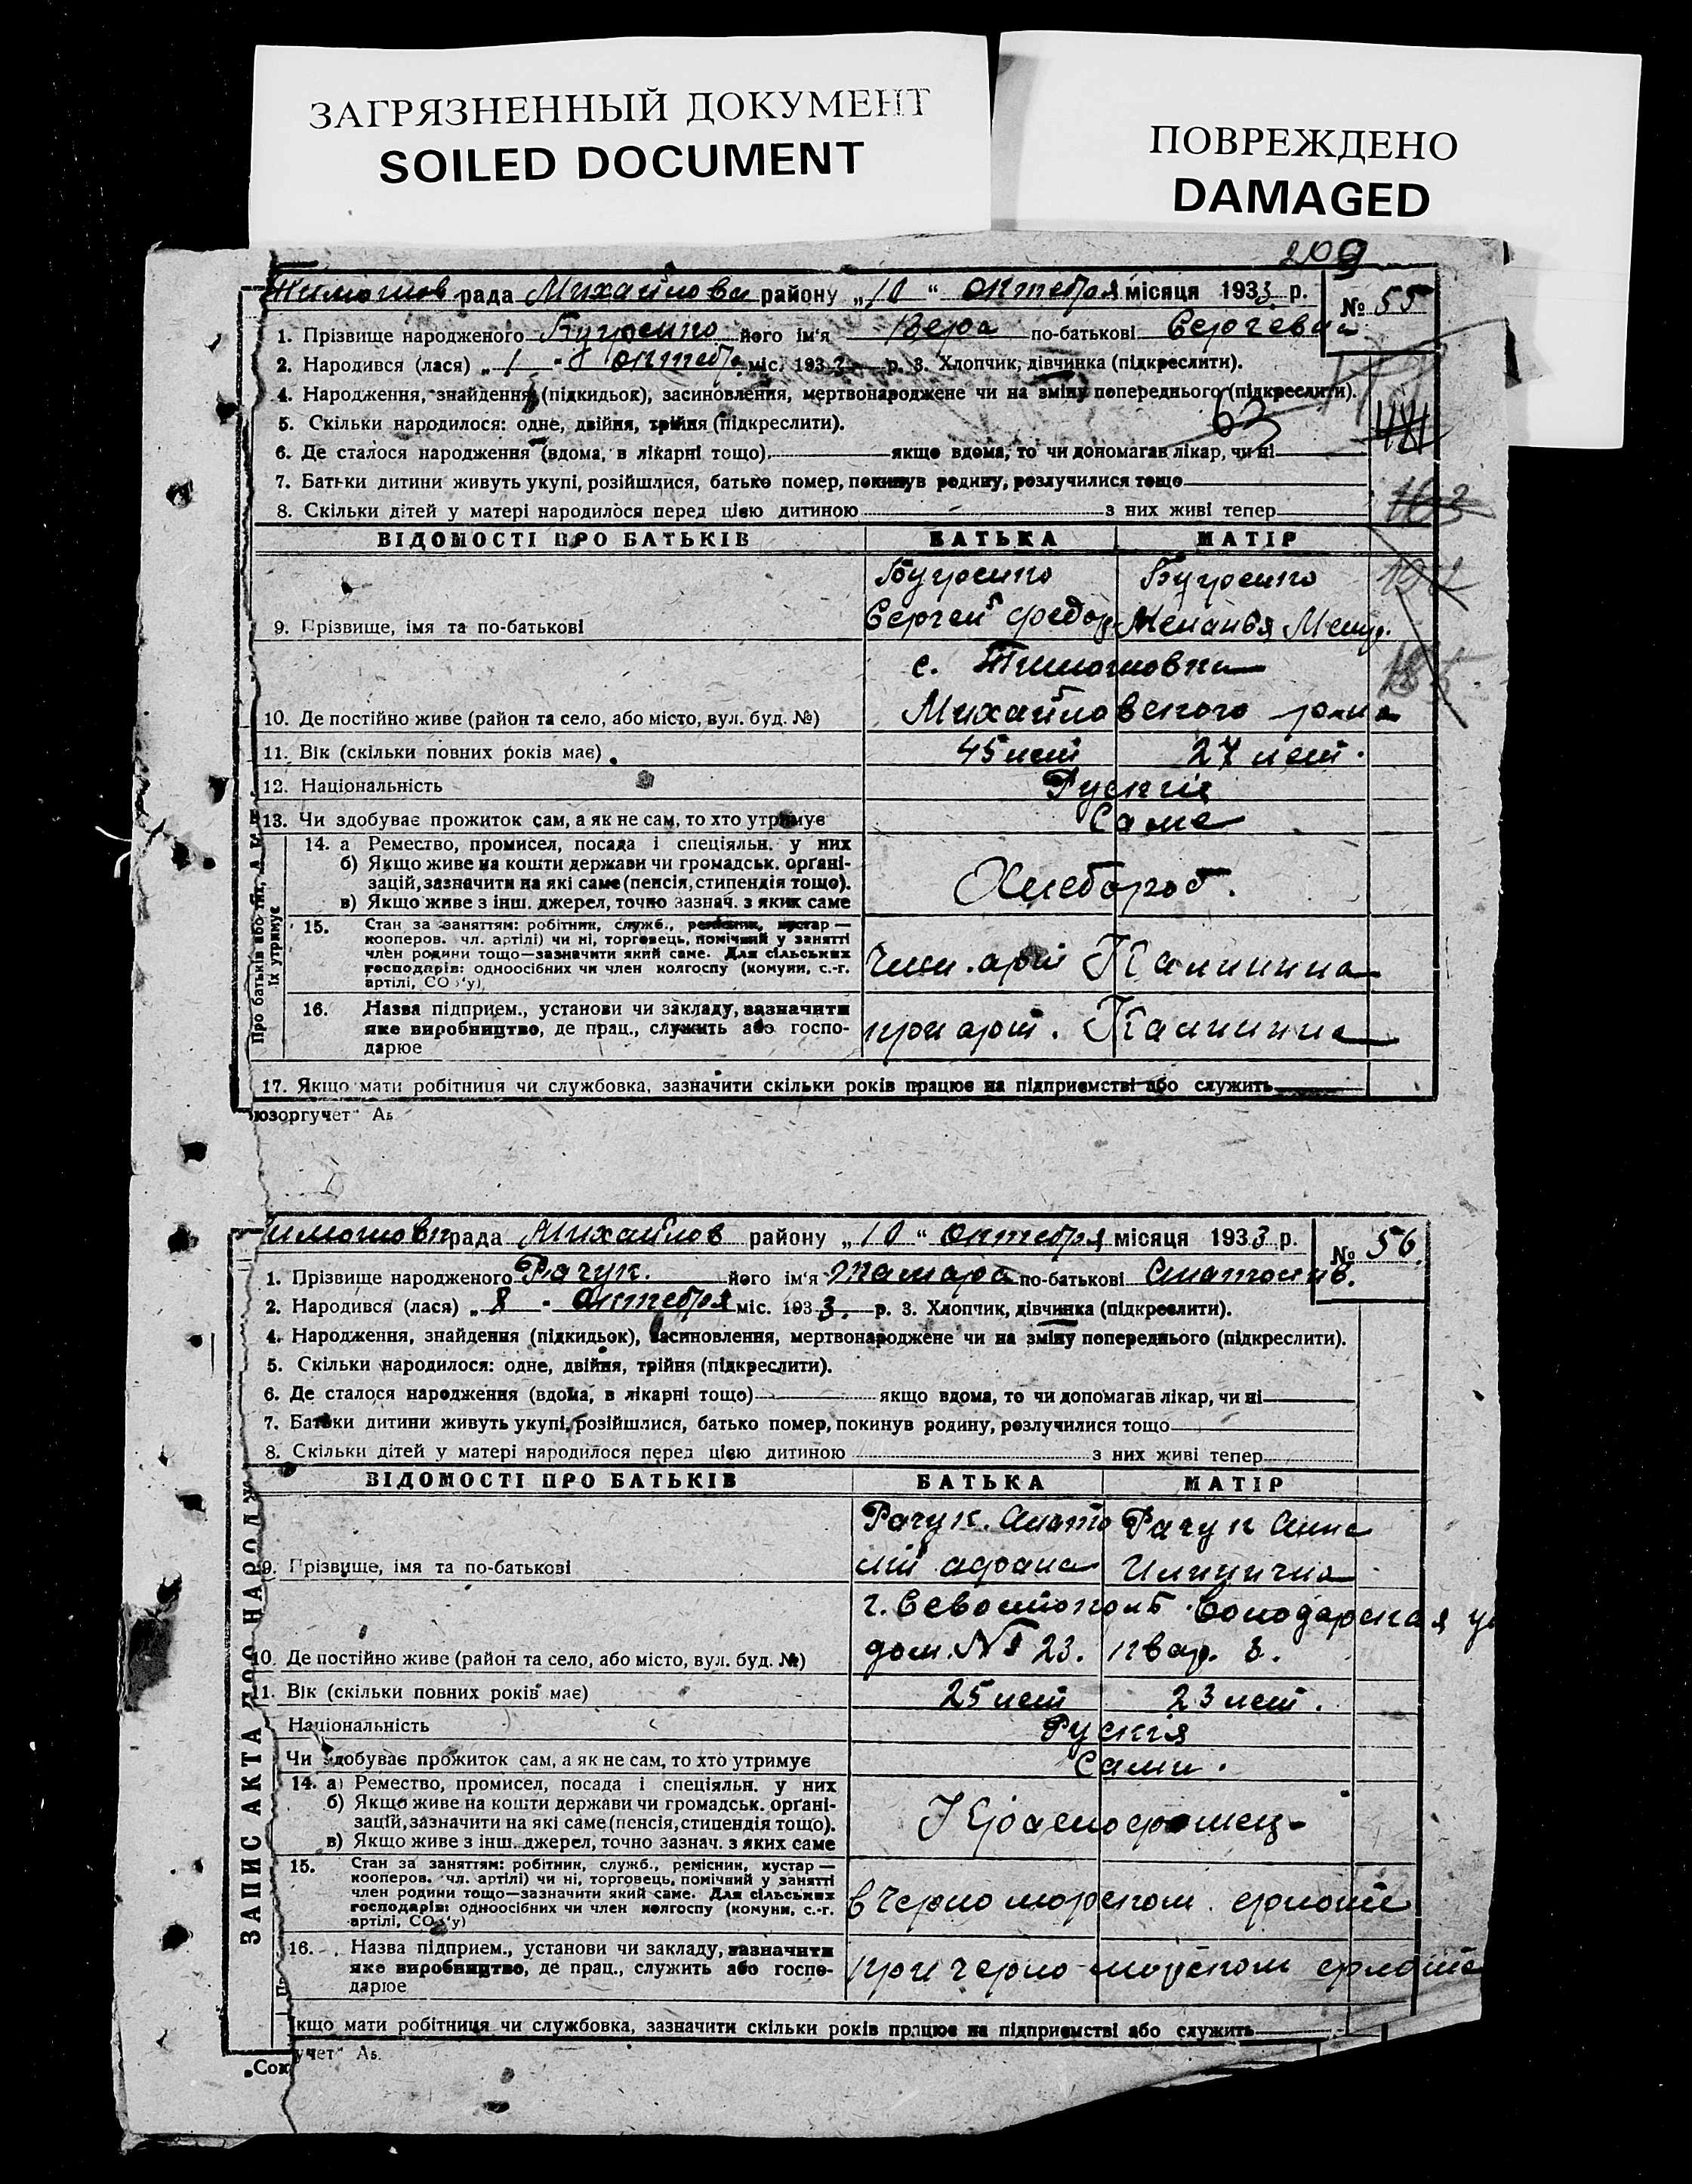 ЗАГРЯЗНЕННЫЙ ДОКУМЕНТ
SOILED DOCUMENT
ПОВРЕЖДЕНО
DAMAGED
209
Тимошов рада Михайлови району „10“ октебря місяця 1933 р. № 55
1. Прізвище народженого його ім'я Вера по-батькові Сергевна
2. Народився (лася) „1" октебр міс. 193 р. 3. Хлопчик, дівчинка (підкреслити).
4. Народження, знайдення (підкидьок), засиновлення, мертвонароджене чи на зміну попереднього (підкреслити).
63
5. Скільки народилося: одне, двійня, трійня (підкреслити).
6. Де сталося народження (вдома, в лікарні тощо) якщо вдома, то чи допомагав лікар, чи ні
7. Батьки дитини живуть укупі, розійшлися, батько помер, покинув родину, розлучилися тощо
8. Скільки дітей у матері народилося перед цією дитиною з них живі тепер
163
ВІДОМОСТІ ПРО БАТЬКІВ БАТЬКА МАТІР
9. Прізвище, імя та по-батькові
Сергей Федор
с. Тимошовка
10. Де постійно живе (район та село, або місто, вул. буд. №) Михайловского
11. Вік (скільки повних років має) 45 лет 27 лет.
12. Національність Рускии
13. Чи здобуває прожиток сам, а як не сам, то хто утримує Саме
14. а Ремество, промисел, посада і спеціяльн. у них
б) Якщо живе на кошти держави чи громадськ. орґані-
зацій, зазначити на які саме (пенсія, стипендія тощо).
в) Якщо живе з інш. джерел, точно зазнач. з яких саме
Хлебороб.
15. Стан за заняттям: робітник, служб., ремісник, кустар —
кооперов. чл. артілі) чи ні, торговець, помічний у занятті
член родини тощо—зазначити який саме. Для сільських
господарів: одноосібних чи член колгоспу (комуни, с.-г.
артілі, СО у)
Член. арт Калинина
16. Назва підприєм., установи чи закладу, зазначити
яке виробництво, де прац., служить або госпо-
дарює
при арт. Калинина
Про батьків або тих, хто
їх утримує
17. Якщо мати робітниця чи службовка, зазначити скільки років працює на підприємстві або служить
юзоргучет" Аь
имошовк рада Михайлов району „10“ октебря місяця 1933 р. № 56
1. Прізвище народженого Рачук. його ім'я Тамара по-батькові Анатолив.
2. Народився (лася) „8" октебря міс. 1933. р. 3. Хлопчик, дівчинка (підкреслити).
4. Народження, знайдення (підкидьок), засиновлення, мертвонароджене чи на зміну попереднього (підкреслити).
5. Скільки народилося: одне, двійня, трійня (підкреслити).
6. Де сталося народження (вдома, в лікарні тощо) якщо вдома, то чи допомагав лікар, чи ні
7. Батьки дитини живуть укупі, розійшлися, батько помер, покинув родину, розлучилися тощо
8. Скільки дітей у матері народилося перед цією дитиною з них живі тепер
ВІДОМОСТІ ПРО БАТЬКІВ БАТЬКА МАТІР
Рачук. Анато Рачук Анна
9. Прізвище, імя та по-батькові лий афана Илинична
г. Севостополь Володарская ул
10. Де постійно живе (район та село, або місто, вул. буд. №) дом. № 23. квар. 3.
11. Вік (скільки повних років має) 25 лет 23 лет.
Національність Рускія
Чи здобуває прожиток сам, а як не сам, то хто утримує Сами.
14. а) Ремество, промисел, посада і спеціяльн. у них
б) Якщо живе на кошти держави чи громадськ. орґані-
зацій, зазначити на які саме (пенсія, стипендія тощо).
в) Якщо живе з інш. джерел, точно зазнач. з яких саме
Краснофлотец
15. Стан за заняттям: робітник, служб., ремісник, кустар —
кооперов. чл. артілі) чи ні, торговець, помічний у занятті
член родини тощо—зазначити який саме. Для сільських
господарів: одноосібних чи член колгоспу (комуни, с.-г.
артілі, СО у)
в Черноморском флоте
16. Назва підприєм., установи чи закладу, зазначити
яке виробництво, де прац., служить або госпо-
дарює
при черно-морском флоте
кщо мати робітниця чи службовка, зазначити скільки років працює на підприємстві або служить
„Сок
учет" Аь.
ЗАПИС АКТА ПРО НАРОДЖ